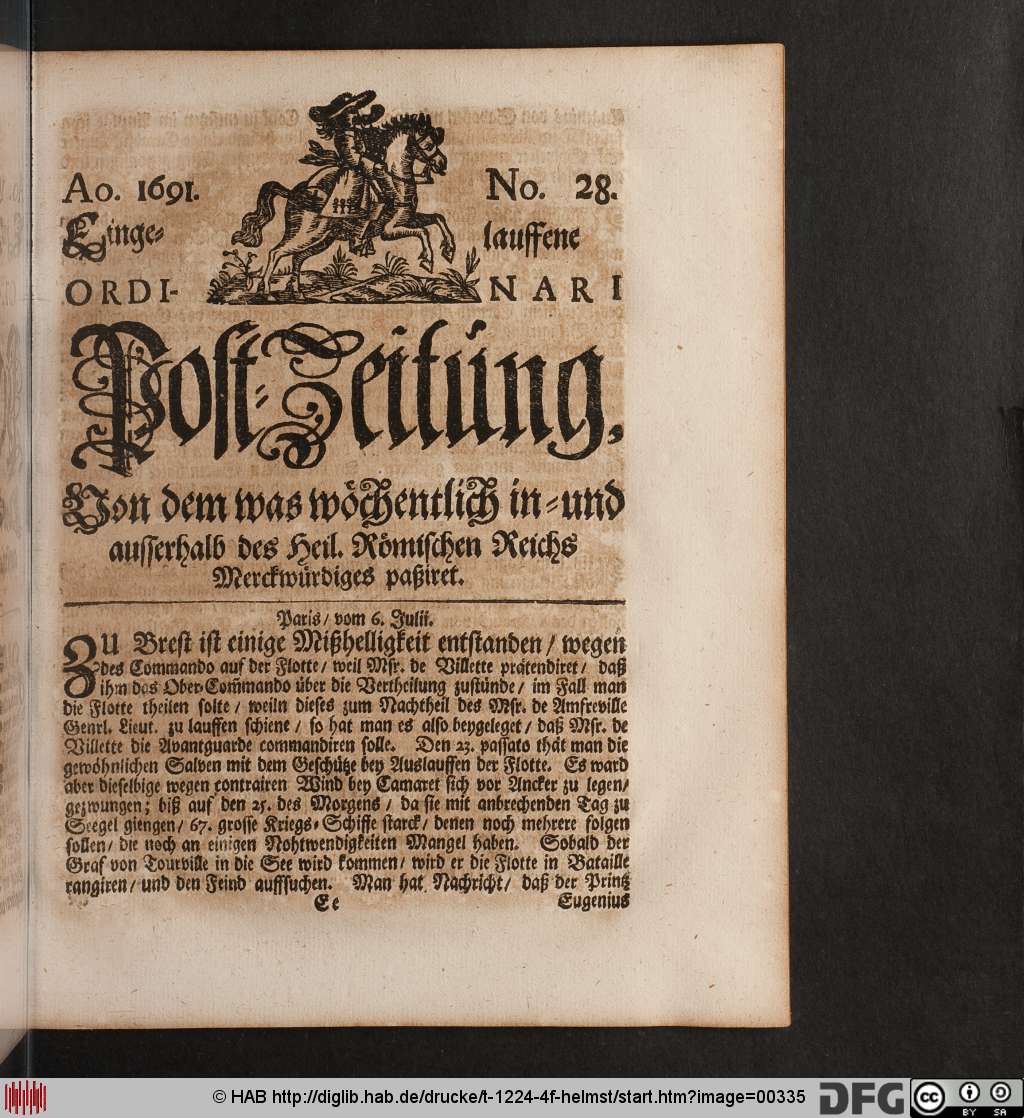 Ao. 1691. No. 28.
Einge- lauffene
ORDI- NARI
Post-Zeitung,
Von dem was wöchentlich in- und
ausserhalb des Heil. Römischen Reichs
Merckwürdiges paßiret.
Paris/ vom 6. Julii.
ZU Brest ist einige Mißhelligkeit entstanden/ wegen
des Commando auf der Flotte/ weil Msr. de Villette prätendiret/ daß
ihm das Ober-Com̃ando über die Vertheilung zustünde/ im Fall man
die Flotte theilen solte/ weiln dieses zum Nachtheil des Msr. de Amfreville
Genrl. Lieut. zu lauffen schiene/ so hat man es also beygeleget/ daß Msr. de
Villette die Avantguarde commandiren solle. Den 23. passato thät man die
gewöhnlichen Salven mit dem Geschütze bey Auslauffen der Flotte. Es ward
aber dieselbige wegen contrairen Wind bey Camaret sich vor Ancker zu legen/
gezwungen; biß auf den 25. des Morgens/ da sie mit anbrechenden Tag zu
Seegel giengen/ 67. grosse Kriegs-Schiffe starck/ denen noch mehrere folgen
sollen/ die noch an einigen Nohtwendigkeiten Mangel haben. Sobald der
Graf von Tourville in die See wird kommen/ wird er die Flotte in Bataille
rangiren/ und den Feind auffsuchen. Man hat Nachricht/ daß der Printz
Ee Eugenius
© HAB http://diglib.hab.de/drucke/t-1224-4f-helmst/start.htm?image=00335
DFG
cc BY SA